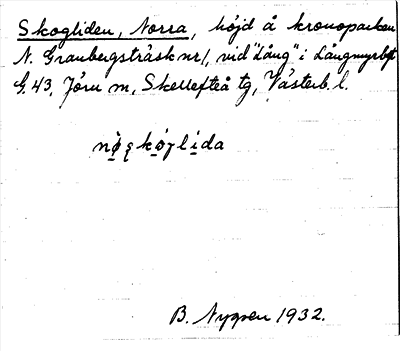 Skogliden, Norra, höjd å kronoparken
N. Granbergsträsk nr 1, vid "Lång" i Långmyrbgt
G. 43, Jörn sn, Skellefteå tg, Västerb. l.
B. Nygren 1932.